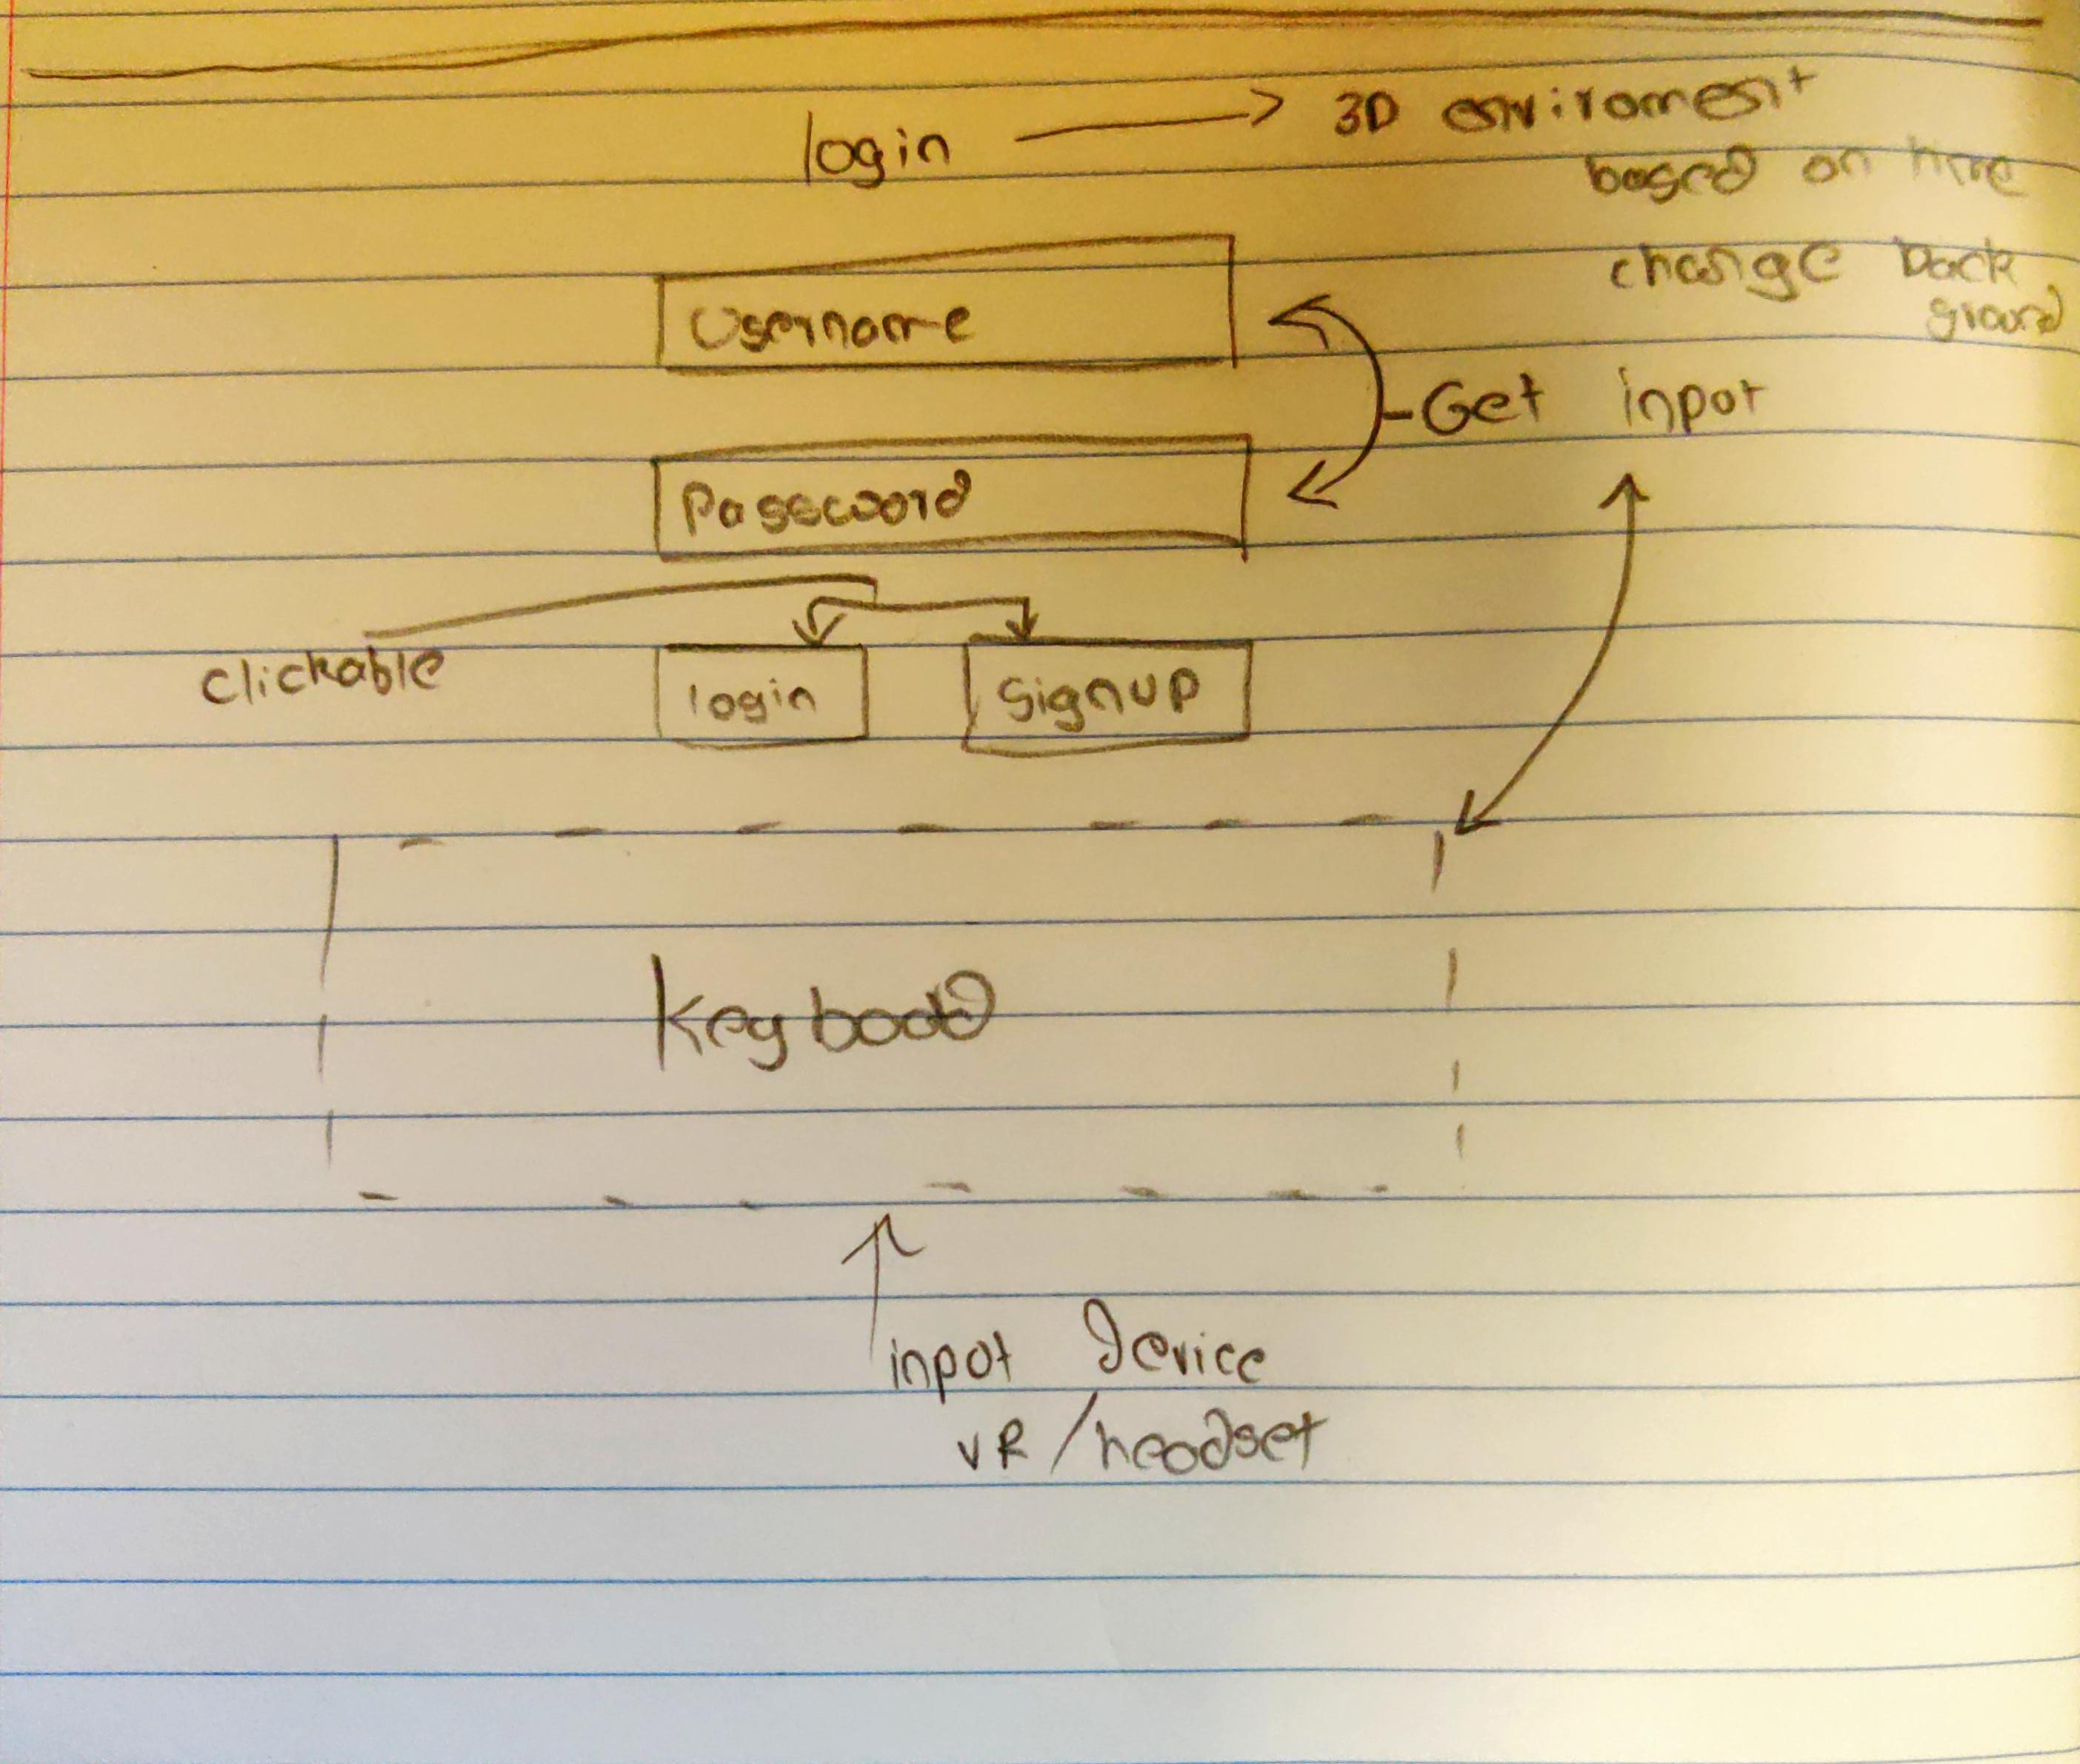 login 3D enviroment
based on time
change back
ground
Username
Get input
Password
clickable
login signup
Keyboad
input Device
VR/headset